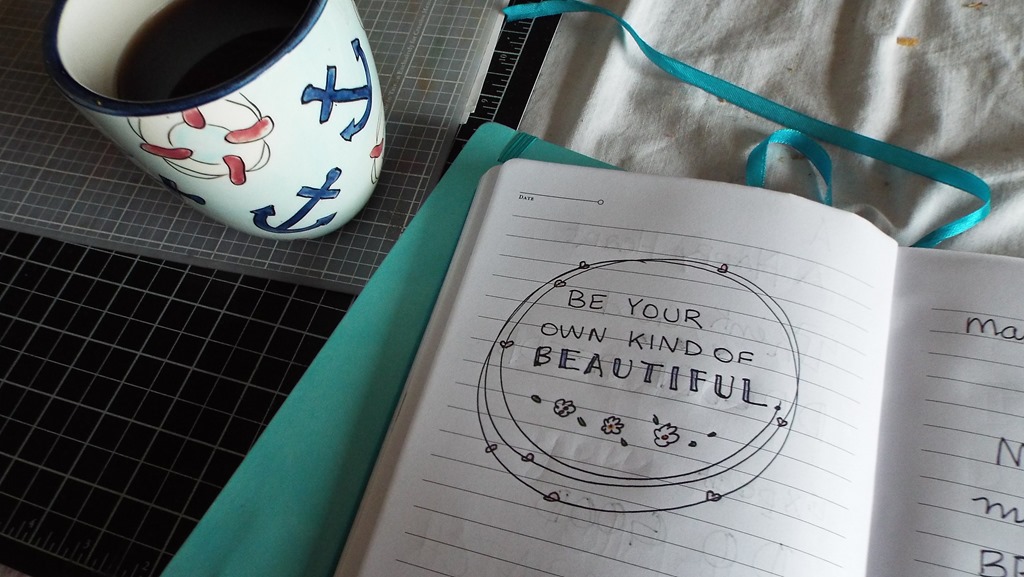 DATE
BE YOUR
OWN KIND OF
BEAUTIFUL.